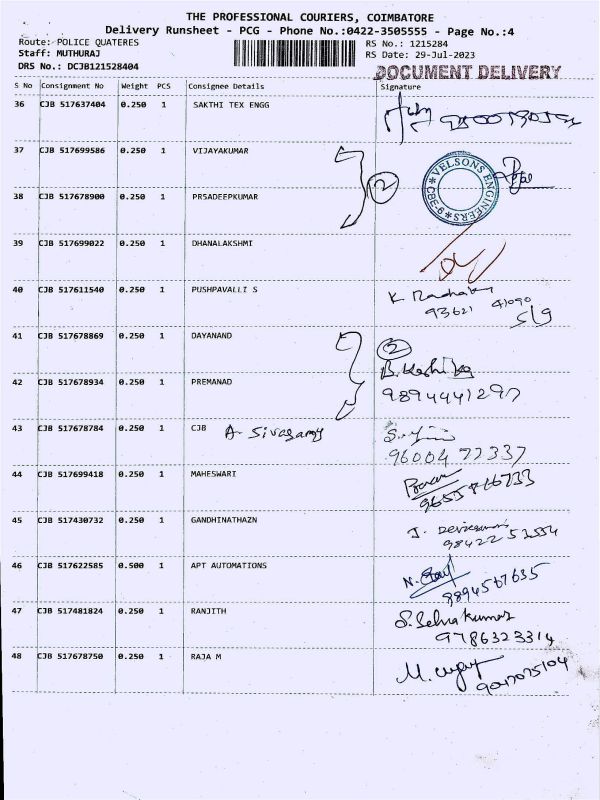 THE PROFESSIONAL COURIERS, COIMBATORE
Delivery Runsheet - PCG - Phone No.:0422-3505555 - Page No.:4
Route: POLICE QUATERES
RS No.: 1215284
Staff: MUTHURAJ
RS Date: 29-Jul-2023
DRS No.: DCJB121528404
DOCUMENT DELIVERY
S No Consignment No Weight PCS Consignee Details Signature
36 CJB 517637404 0.250 1 SAKTHI TEX ENGG
37 CJB 517699586 0.250 1 VIJAYAKUMAR
2
VELSONS ENGINEERS
CBE-6
38 CJB 517678900 0.250 1 PR5ADEEPKUMAR
39 CJB 517699022 0.250 1 DHANALAKSHMI
40 CJB 517611540 0.250 1 PUSHPAVALLI S
K
93621 41090
S/9
41 CJB 517678869 0.250 1 DAYANAND
2
42 CJB 517678934 0.250 1 PREMANAD
9894441297
43 CJB 517678784 0.250 1 CJB A- Sivasamy
9600477337
44 CJB 517699418 0.250 1 MAHESWARI
45 CJB 517430732 0.250 1 GANDHINATHAZN
46 CJB 517622585 0.500 1 APT AUTOMATIONS
8894567635
47 CJB 517481824 0.250 1 RANJITH
S. Selvakumar
9786323314
48 CJB 517678750 0.250 1 RAJA M